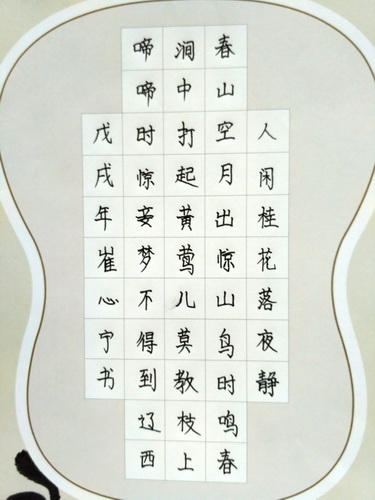 人闲桂花落夜静
春山空月出惊山鸟时鸣春
涧中打起黄莺儿莫教枝上
啼啼时惊妾梦不得到辽西
戊戌年崔心宁书